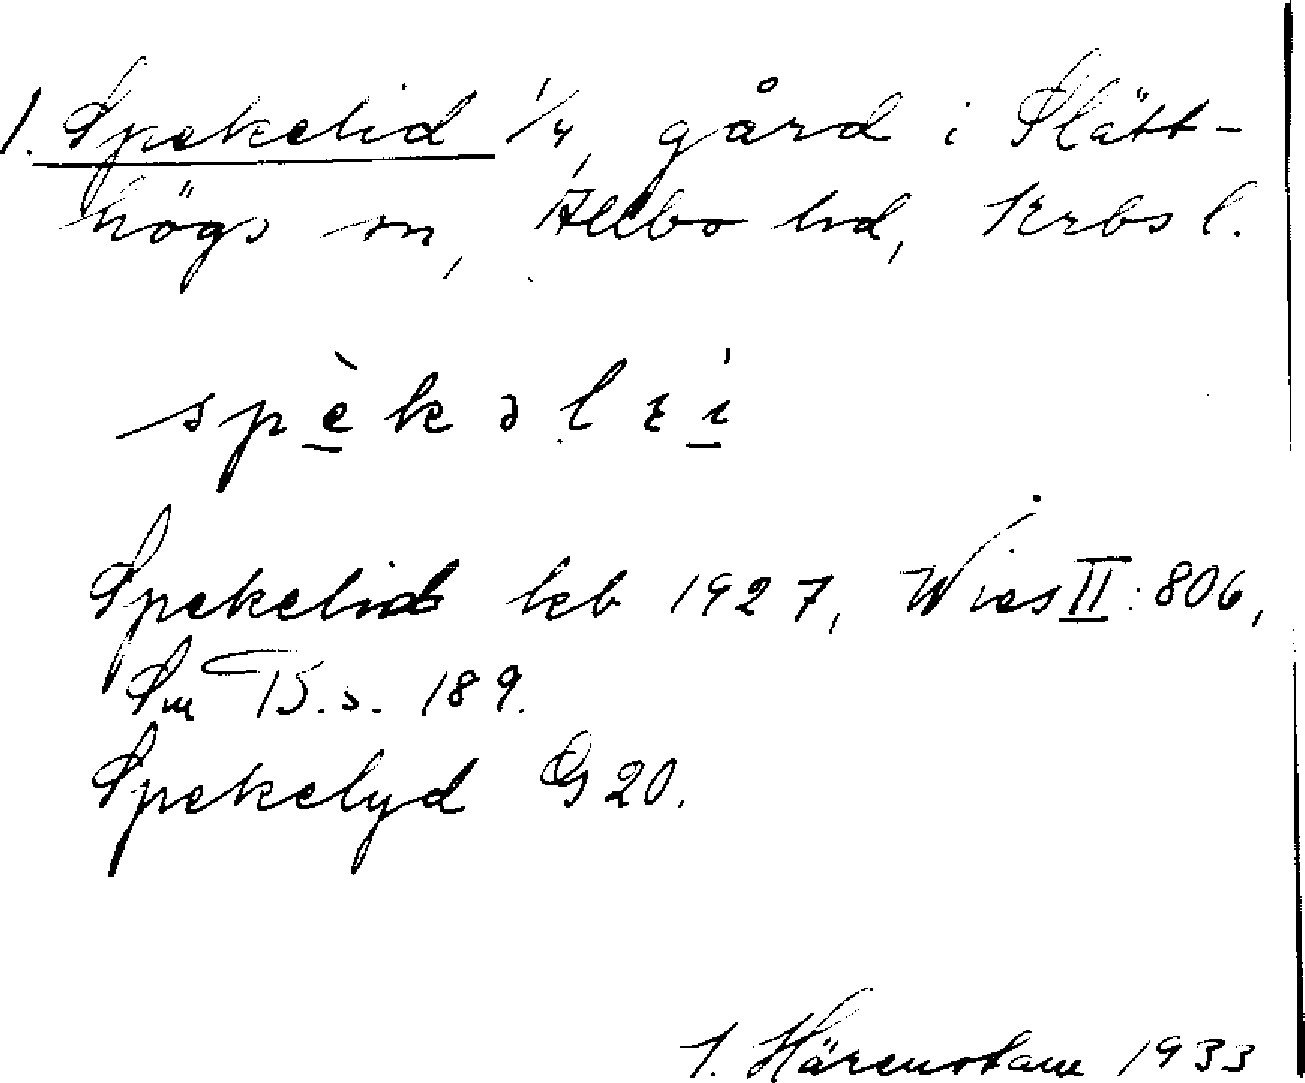 1. Spekelid 1/4, gård i Slätt-
högs sn, Allbo hd, Krbs l.
spèkəlɩí
Spekelid kb 1927, Wies II: 806,
Sm T5. s. 189.
Spekelyd G 20.
1933